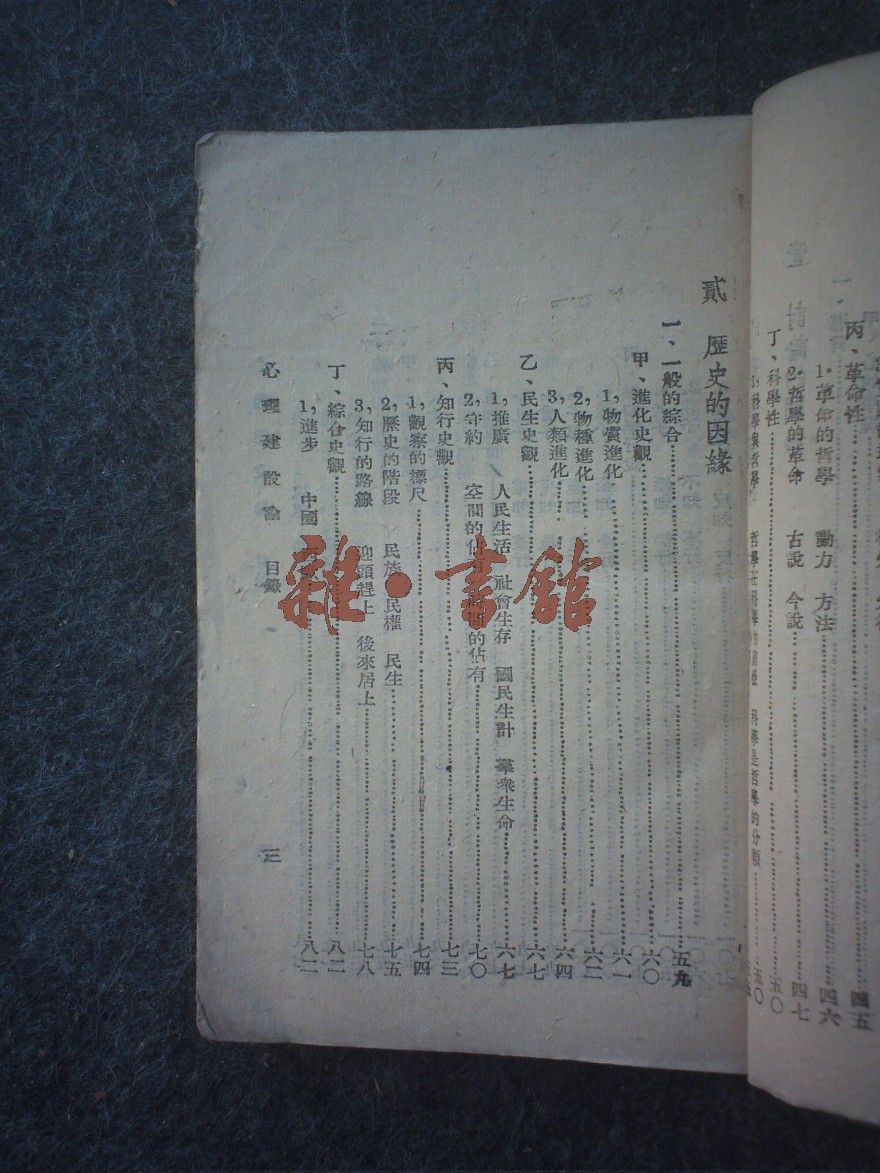 丙、革命性……四五
1·革命的哲學 動力 方法……四六
2·哲學的革命 古說 今說……四七
丁、科學性……五〇
科學是哲學的分類……五〇
貳 歷史的因緣
一、一般的綜合……五九
甲、進化史觀……六〇
1,物質進化……六一
2,物種進化……六二
3,人類進化……六四
乙、民生史觀……六七
1,推廣 人民生活 社會生存 國民生計 羣衆生命……六七
2,守約 空間的佔有 時間的佔有……七〇
丙、知行史觀……七三
1,觀察的標尺……七四
2,歷史的階段 民族 民權 民生……七五
3,知行的路線 迎頭趕上 後來居上……七八
丁、綜合史觀……八二
1,進步 中國……八二
心理建設論 目錄 三
雜·書館